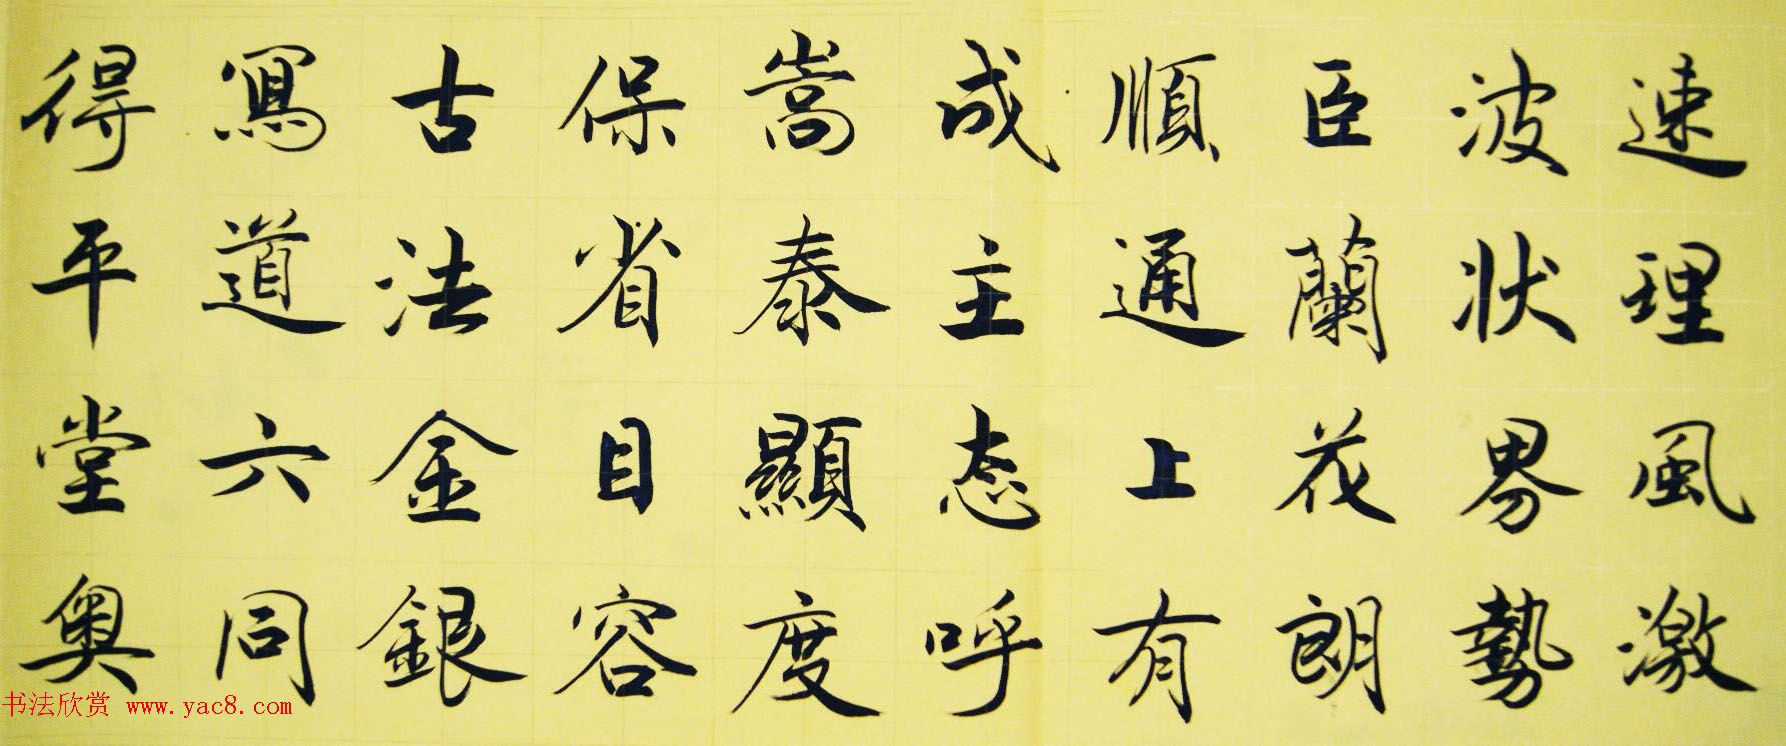 速理風激
波状界勢
臣蘭花朗
順通上有
成主态呼
嵩泰顯度
保省目容
古法金銀
寫道六同
得平堂奥
书法欣赏 www.yac8.com